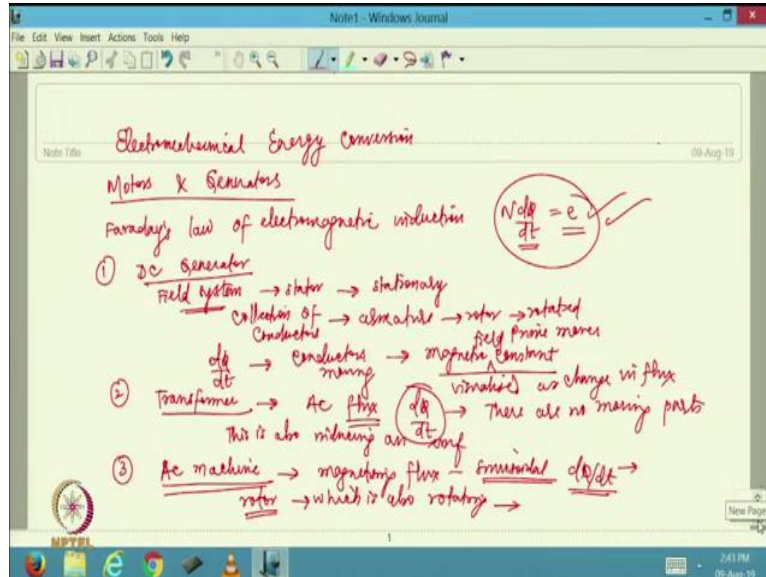 Note1 - Windows Journal
File Edit View Insert Actions Tools Help
Note Title
09-Aug-19
Electromechanical Energy Conversion
Motors & Generators
Faraday's law of electromagnetic induction
N dφ/dt = e
① DC Generator
Field system → stator → stationary
Collection of conductors → armature → rotor → rotated
Prime mover
dφ/dt → conductors moving → magnetic field constant
visualised as change in flux
② Transformer → AC flux dφ/dt → There are no moving parts
This is also inducing an emf
③ AC machine → magnetising flux - sinusoidal dφ/dt →
rotor → which is also rotating →
New Page
NPTEL
1
2:43 PM
09-Aug-19